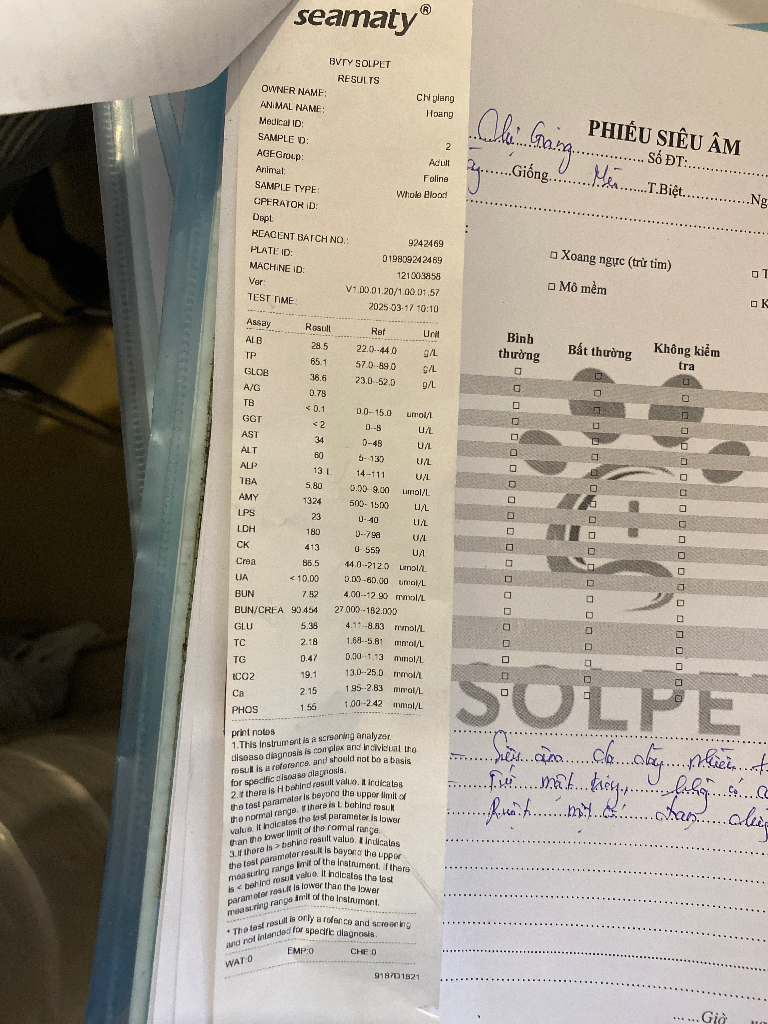 seamaty®
BVTY SOLPET
RESULTS
OWNER NAME: Chi giang
ANIMAL NAME: Hoang
Medical ID:
SAMPLE ID: 2
AGEGroup: Adult
Animal: Feline
SAMPLE TYPE: Whole Blood
OPERATOR ID:
Dept:
REAGENT BATCH NO.: 9242469
PLATE ID: 019809242469
MACHINE ID: 121003858
Ver: V1.00.01.20/1.00.01.57
TEST TIME: 2025-03-17 10:10
Assay Result Ref Unit
ALB 28.5 22.0--44.0 g/L
TP 65.1 57.0--89.0 g/L
GLOB 36.6 23.0--52.0 g/L
A/G 0.78
TB < 0.1 0.0--15.0 umol/L
GGT < 2 0--8 U/L
AST 34 0--48 U/L
ALT 60 5--130 U/L
ALP 13 L 14--111 U/L
TBA 5.80 0.00--9.00 umol/L
AMY 1324 500--1500 U/L
LPS 23 0--40 U/L
LDH 180 0--798 U/L
CK 413 0--559 U/L
Crea 86.5 44.0--212.0 umol/L
UA < 10.00 0.00--60.00 umol/L
BUN 7.82 4.00--12.90 mmol/L
BUN/CREA 90.454 27.000--182.000
GLU 5.38 4.11--8.83 mmol/L
TC 2.18 1.68--5.81 mmol/L
TG 0.47 0.00--1.13 mmol/L
tCO2 19.1 13.0--25.0 mmol/L
Ca 2.15 1.95--2.83 mmol/L
PHOS 1.55 1.00--2.42 mmol/L
print notes
1.This Instrument is a screening analyzer.
disease diagnosis is complex and individual, the
result is a reference, and should not be a basis
for specific disease diagnosis.
2.If there is H behind result value. It indicates
the test parameter is beyond the upper limit of
the normal range. If there is L behind result
value. It indicates the test parameter is lower
than the lower limit of the normal range.
3.If there is > behind result value. It indicates
the test parameter result is beyond the upper
measuring range limit of the Instrument. If there
is < behind result value. It indicates the test
parameter result is lower than the lower
measuring range limit of the Instrument.
* The test result is only a refence and screening
and not intended for specific diagnosis.
WAT:0 EMP:0 CHE:0
9187D1821
PHIẾU SIÊU ÂM
Chị Giang Số ĐT:
Giống Mèo T.Biệt Ng
Xoang ngực (trừ tim)
Mô mềm
Bình thường Bất thường Không kiểm tra
SOLPE
Siêu âm dạ dày nhiều
Giờ